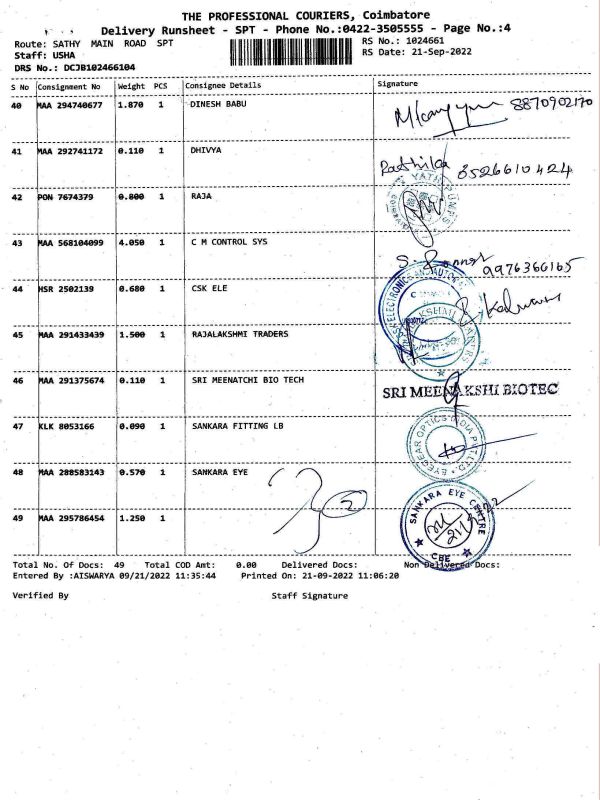 THE PROFESSIONAL COURIERS, Coimbatore
Delivery Runsheet - SPT - Phone No.:0422-3505555 - Page No.:4
Route: SATHY MAIN ROAD SPT
RS No.: 1024661
Staff: USHA
RS Date: 21-Sep-2022
DRS No.: DCJB102466104
S No Consignment No Weight PCS Consignee Details Signature
40 MAA 294740677 1.870 1 DINESH BABU 8870902170
41 MAA 292741172 0.110 1 DHIVYA
42 PON 7674379 0.800 1 RAJA
43 MAA 568104099 4.050 1 C M CONTROL SYS 9976366165
44 HSR 2502139 0.680 1 CSK ELE
45 MAA 291433439 1.500 1 RAJALAKSHMI TRADERS
46 MAA 291375674 0.110 1 SRI MEENATCHI BIO TECH SRI MEENAKSHI BIOTEC
47 KLK 8053166 0.090 1 SANKARA FITTING LB
48 MAA 288583143 0.570 1 SANKARA EYE
SANKARA EYE CENTRE
CBE
49 MAA 295786454 1.250 1
Total No. Of Docs: 49 Total COD Amt: 0.00 Delivered Docs: Non Delivered Docs:
Entered By :AISWARYA 09/21/2022 11:35:44 Printed On: 21-09-2022 11:06:20
Verified By Staff Signature